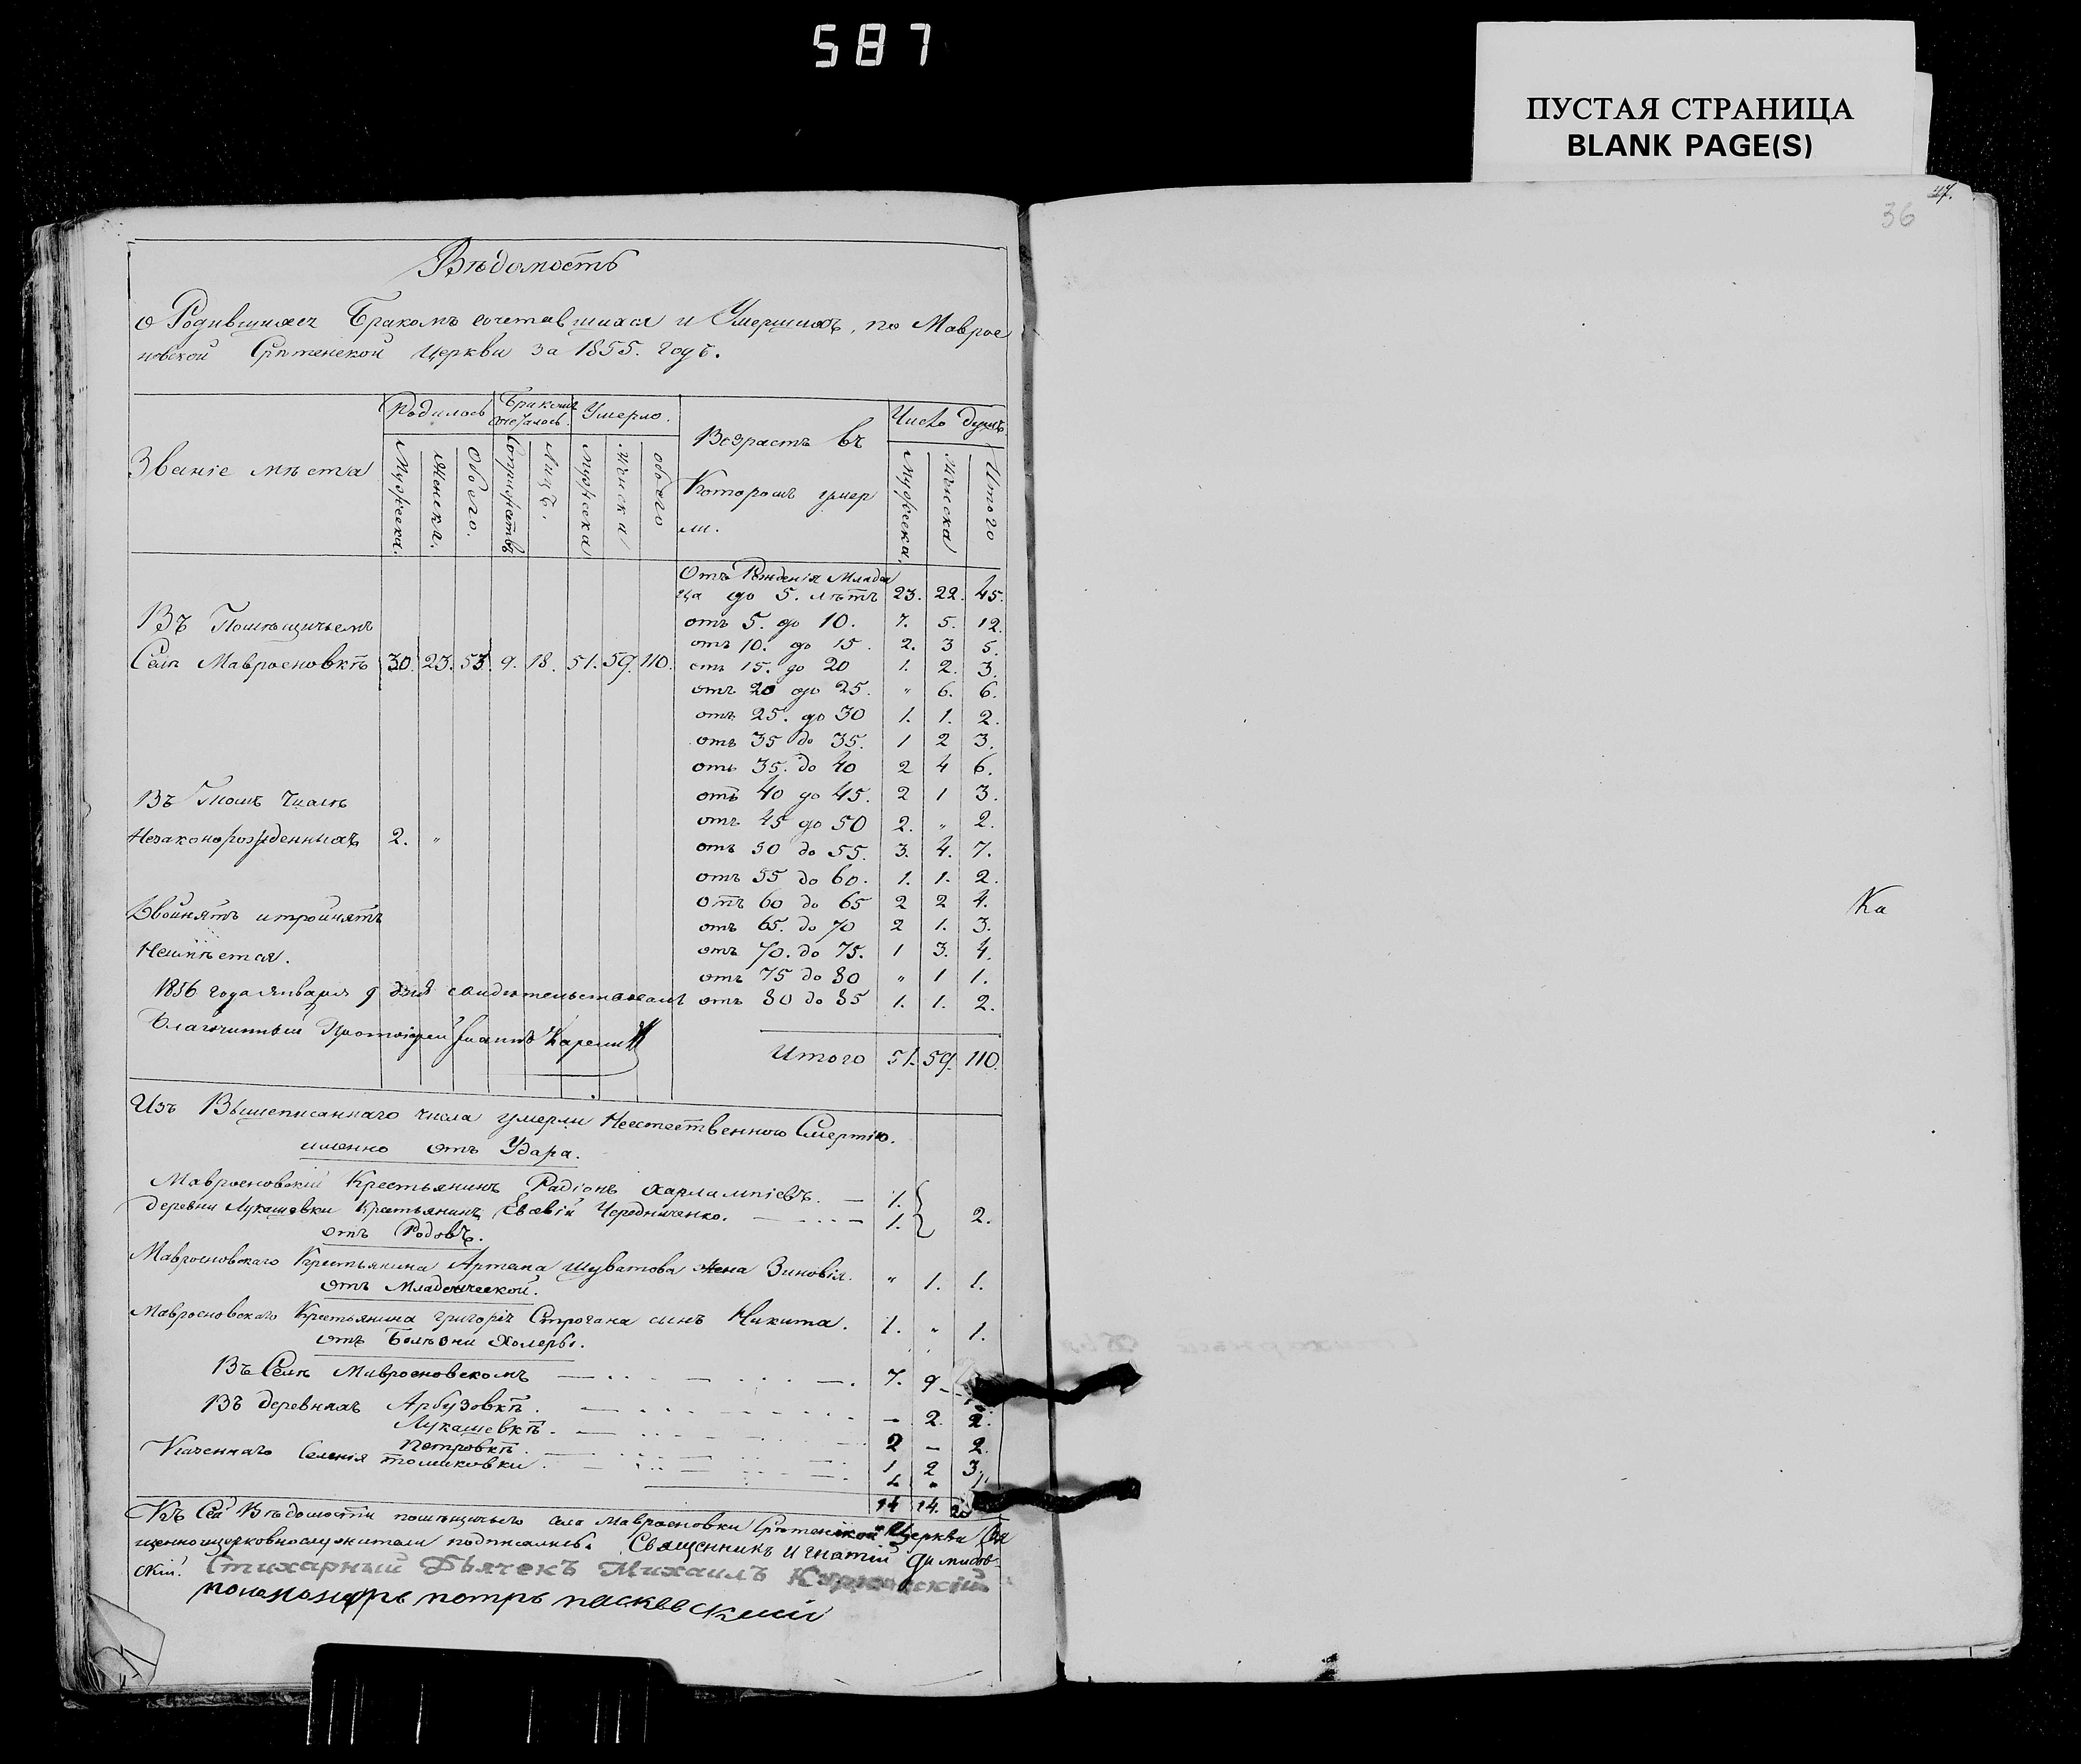 587
ПУСТАЯ СТРАНИЦА
BLANK PAGE(S)
47.
36
Вѣдомость
о Родившихся Бракомъ сочетавшихся и Умершихъ, по Маврое
новской Срѣтенской Церкви за 1855. годъ.
Званіе мѣста
Родилось Бракомъ сочеталось. Умерло. Возрастъ въ Которомъ умер ли. Число душъ.
Мужеска. Женска. Обоего. Лицъ. Мужеска Женска обоего Мужеска. Женска Итого
Отъ Рожденія Млада
ца до 5. лѣтъ 23. 22. 45.
Въ Помѣщичьемъ отъ 5. до 10. 7. 5. 12.
отъ 10. до 15. 2. 3 5.
Селѣ Мавроеновкѣ 30. 23. 53. 9. 18. 51. 59. 110. отъ 15. до 20 1. 2. 3.
отъ 20 до 25. " 6. 6.
отъ 25. до 30 1. 1. 2.
отъ 35 до 35. 1 2 3.
отъ 35. до 40 2 4 6.
Въ Томъ Числѣ отъ 40 до 45. 2 1 3.
отъ 45 до 50 2. " 2.
Незаконорожденныхъ 2. " отъ 50 до 55. 3. 4. 7.
отъ 55 до 60. 1. 1. 2.
отъ 60 до 65 2 2 4.
Двойнятъ и тройнятъ отъ 65. до 70 2 1. 3.
Неимѣется. отъ 70. до 75. 1 3. 4.
отъ 75 до 80 " 1 1.
1856 года января 9 дня свидѣтельствовалъ отъ 80 до 85 1. 1. 2.
Благочинный Протоіерей Іоаннъ
Итого 51. 59. 110.
Изъ Вышеписаннаго числа умерли Неестественного Смертію.
именно отъ Удара.
Мавроеновскій Крестьянинъ Радіонъ Харлампіевъ. — 1.
Деревни Лукашовки Крестьянинъ Евсевій Чередниченко. — 1. 2.
отъ Родовъ.
Мавроеновскаго Крестьянина Артема Шуватова жена Зиновія. " 1. 1.
отъ Младенческой.
Мавроеновскаго Крестьянина Григорія Строгана сынъ Никита. 1. " 1.
отъ Болѣзни Холеры.
Въ Селѣ Мавроеновскомъ — 7. 9.
Въ деревняхъ Арбузовкѣ. — 2. 2.
Лукашевкѣ. 2 — 2.
Петровкѣ. 1 2 3.
Казеннаго Селенія 1 " 1.
14 14.
Къ Сей Вѣдомости помѣщичьего села Мавроеновки Срѣтенской Церкви Свя
щенноцерковнослужители подписались. Священникъ Игнатій
скій.
Стихарный Дьячекъ Михаилъ
пономарь Петръ
Ка